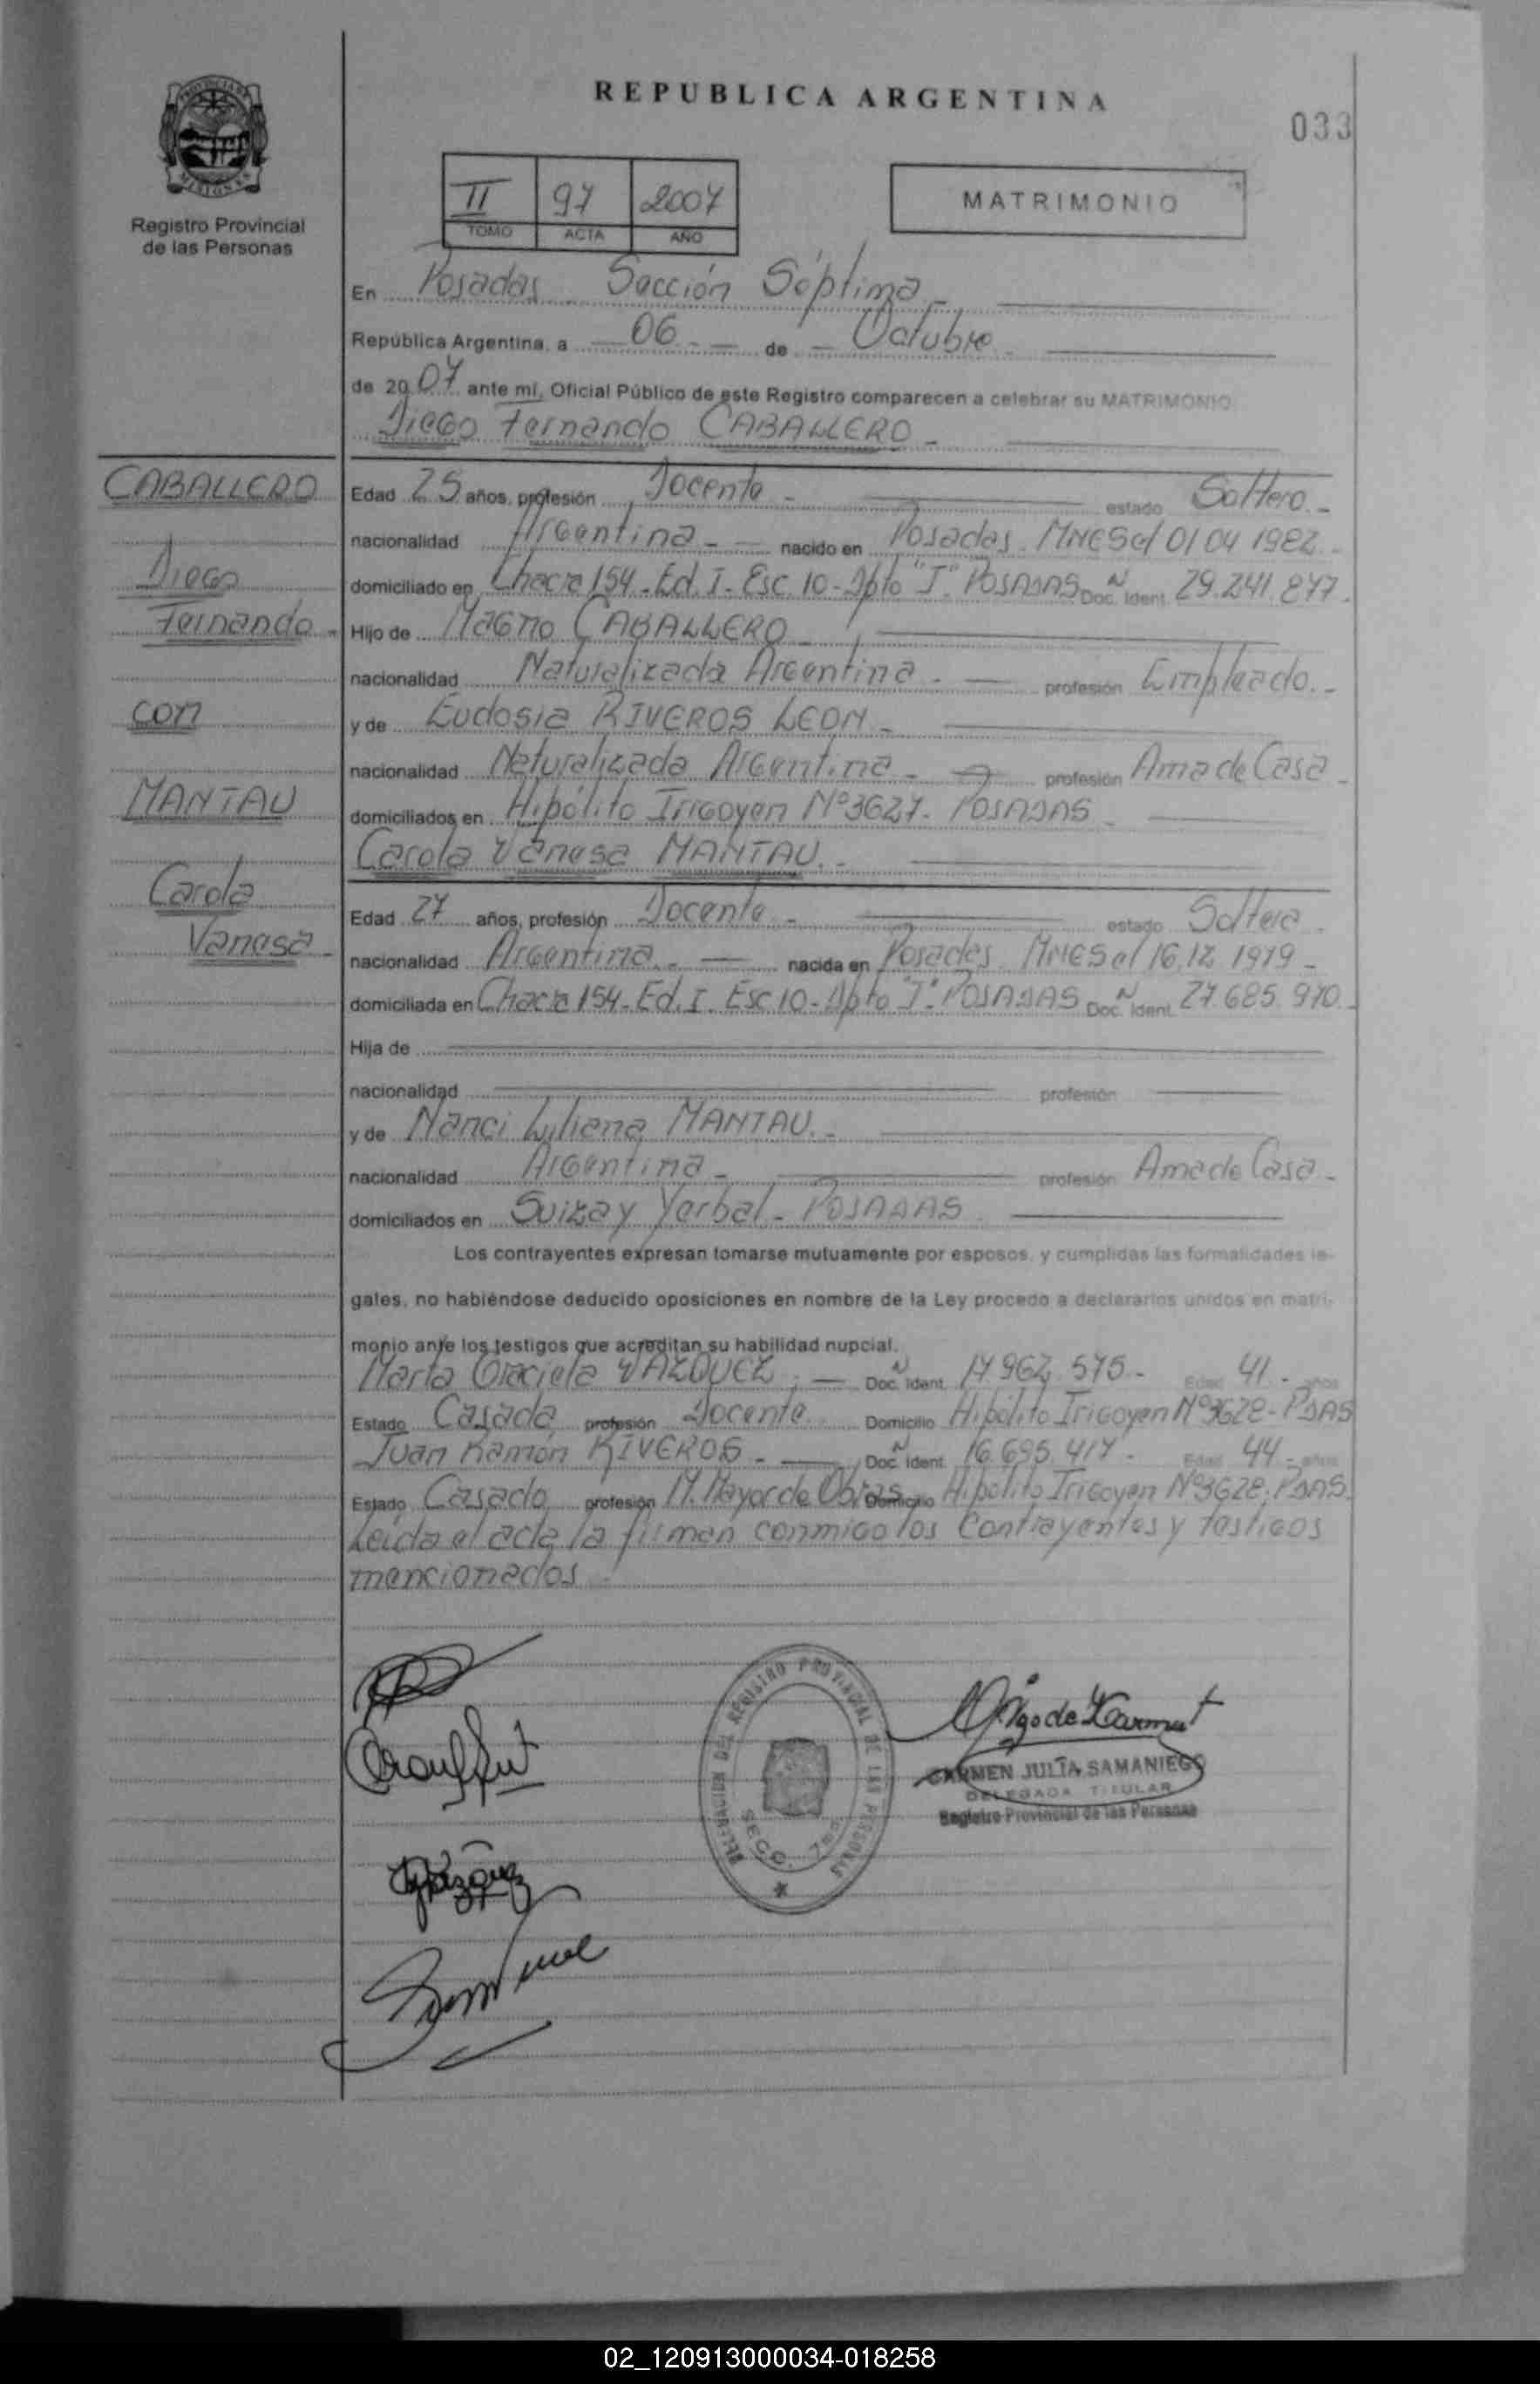 REPUBLICA ARGENTINA
033
Registro Provincial
de las Personas
II 97 2007
TOMO ACTA AÑO
MATRIMONIO
En Posadas Sección Séptima
República Argentina, a 06 de Octubre
de 2007 ante mí, Oficial Público de este Registro comparecen a celebrar su MATRIMONIO
Diego Fernando CABALLERO
CABALLERO
Diego
Fernando
con
MANTAU
Carola
Vanesa
Edad 25 años, profesión Docente estado Soltero.-
nacionalidad Argentina.- nacido en Posadas Mnes el 01 04 1982.-
domiciliado en Chacra 154-Ed. I- Esc. 10-Dpto "J" POSADAS Doc. Ident. 29.241.877.
Hijo de Magno CABALLERO
nacionalidad Naturalizada Argentina.- profesión Empleado.-
y de Eudosia RIVEROS LEON.-
nacionalidad Naturalizada Argentina.- profesión Ama de Casa.-
domiciliados en Hipólito Irigoyen Nº3627- POSADAS
Carola Vanesa MANTAU.-
Edad 27 años, profesión Docente.- estado Soltera
nacionalidad Argentina.- nacida en Posadas Mnes el 16.12 1979.-
domiciliada en Chacra 154-Ed. I Esc 10-Dpto "J" POSADAS Doc. Ident. 27.685.970.
Hija de
nacionalidad profesión
y de Nanci Liliana MANTAU.-
nacionalidad Argentina.- profesión Ama de Casa.-
domiciliados en Suiza y Yerbal- POSADAS
Los contrayentes expresan tomarse mutuamente por esposos, y cumplidas las formalidades le-
gales, no habiéndose deducido oposiciones en nombre de la Ley procedo a declararlos unidos en matri-
monio ante los testigos que acreditan su habilidad nupcial.
Marta Graciela VAZQUEZ Doc. Ident. 17.962.575.- Edad 41.- años
Estado Casada profesión Docente Domicilio Hipólito Irigoyen Nº3628-PDAS
Juan Ramón RIVEROS.- Doc. Ident. 16.695.417.- Edad 44.- años
Estado Casado profesión M. Mayor de Obras Domicilio Hipólito Irigoyen Nº3628, PDAS.
Leída el acta la firman conmigo los Contrayentes y testigos
mencionados
DELEGACION DEL REGISTRO PROVINCIAL DE LAS PERSONAS
SECC. 7ma.
CARMEN JULIA SAMANIEGO
DELEGADA TITULAR
Registro Provincial de las Personas
02_120913000034-018258